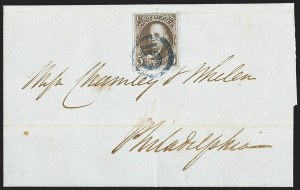 Messrs Chamley & Whelen
Philadelphia